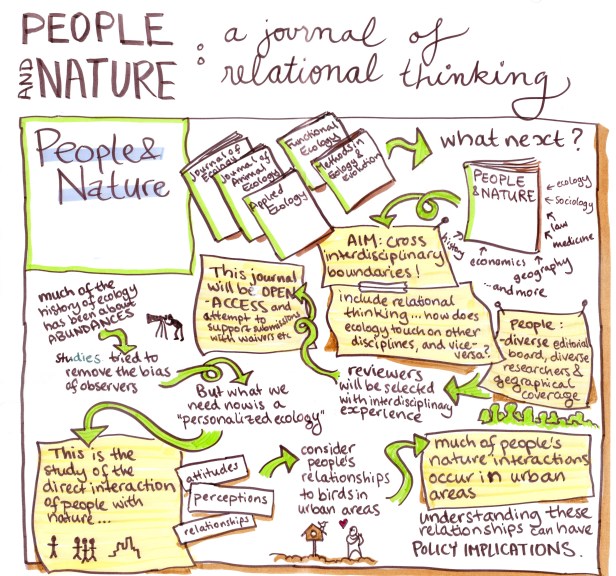 PEOPLE
AND NATURE
: a journal of
relational thinking
People &
Nature
Journal of
Ecology
Journal of
Animal
Ecology
Applied
Ecology
Functional
Ecology
Methods in
Ecology &
Evolution
what next?
PEOPLE
& NATURE
← ecology
← sociology
law
medicine
geography
economics
history
...and more
AIM: CROSS
interdisciplinary
boundaries!
include relational
thinking... how does
ecology touch on other
disciplines, and vice-
versa?
This journal
will be OPEN
-ACCESS and
attempt to
support submissions
with waivers etc
PEOPLE:
-diverse editorial
board, diverse
researchers &
geographical
coverage
reviewers
will be selected
with interdisciplinary
experience
much of the
history of ecology
has been about
ABUNDANCES
studies tried to
remove the bias
of observers
But what we
need now is a
"personalized ecology"
This is the
study of the
direct interaction
of people with
nature...
attitudes
perceptions
relationships
consider
people's
relationships
to birds in
urban areas
much of people's
nature interactions
occur in urban
areas
understanding these
relationships can have
POLICY IMPLICATIONS.